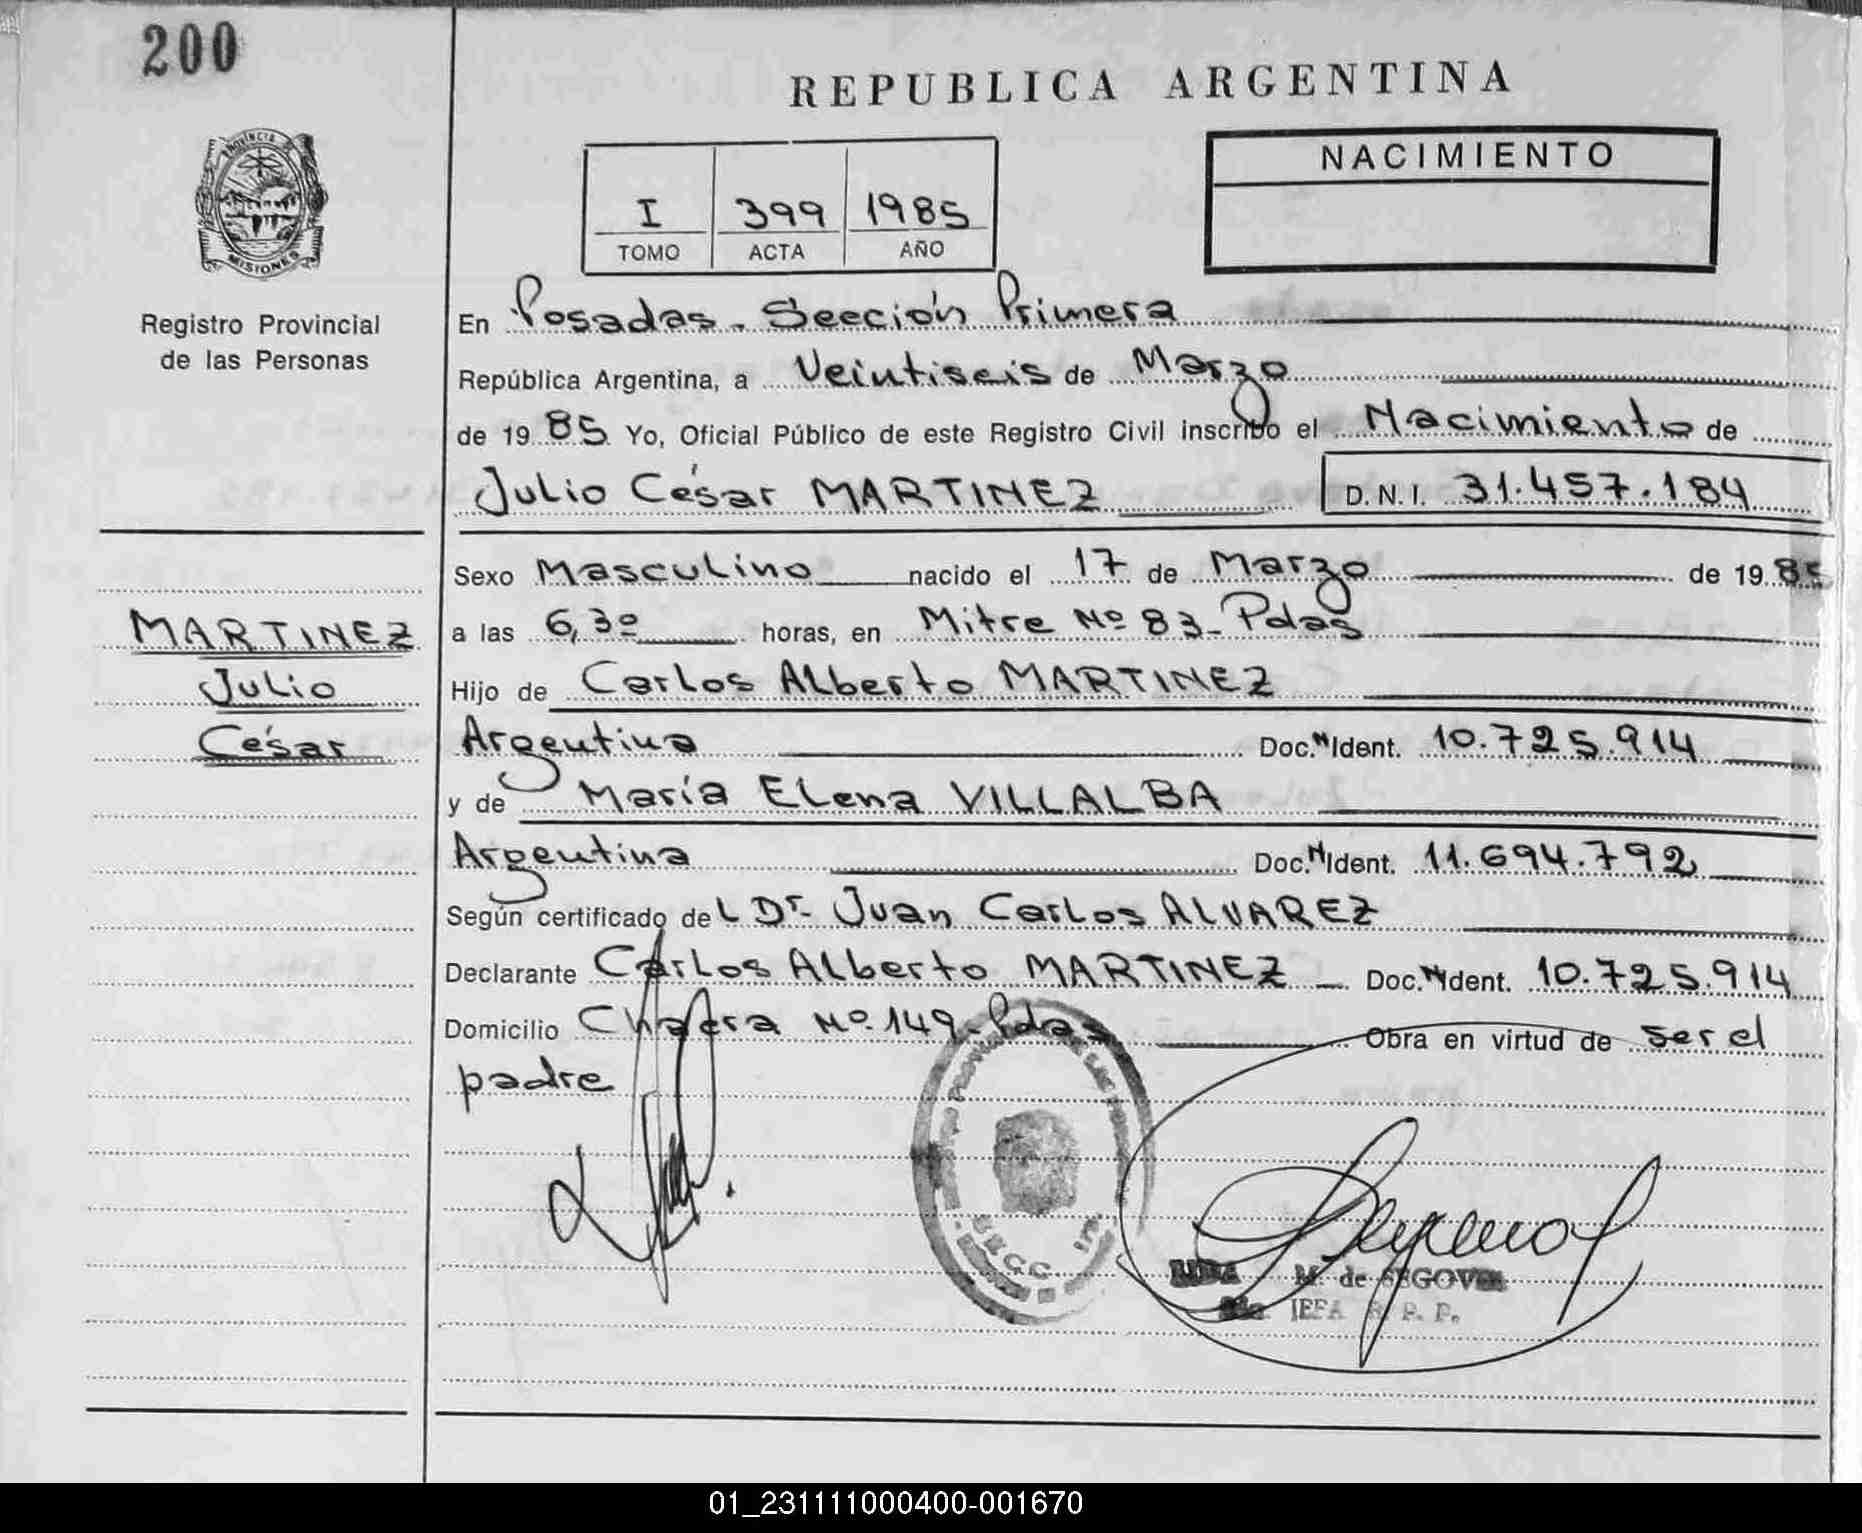 200
REPUBLICA ARGENTINA
PROVINCIA
MISIONES
Registro Provincial
de las Personas
I 399 1985
TOMO ACTA AÑO
NACIMIENTO
En Posadas. Sección Primera
República Argentina, a Veintiseis de Marzo
de 1985 Yo, Oficial Público de este Registro Civil inscribo el Nacimiento de
Julio César MARTINEZ D.N.I. 31.457.184
Sexo Masculino nacido el 17 de Marzo de 1985
a las 6,30 horas, en Mitre Nº 83- Pdas
Hijo de Carlos Alberto MARTINEZ
Argentina Doc. N Ident. 10.725.914
y de María Elena VILLALBA
Argentina Doc. N Ident. 11.694.792
Según certificado del Dr. Juan Carlos ALVAREZ
Declarante Carlos Alberto MARTINEZ Doc. N Ident. 10.725.914
Domicilio Chacra Nº 149- Pdas Obra en virtud de ser el
padre
MARTINEZ
Julio
César
M. de SEGOVIA
R. P. P.
01_231111000400-001670